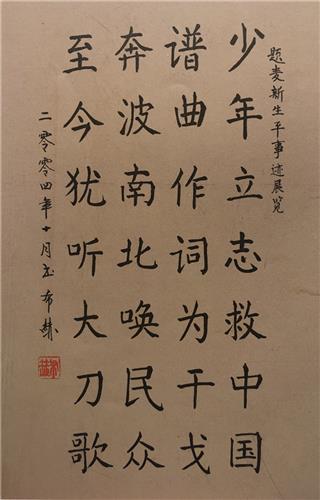 题麦新生平事迹展览
少年立志救中国
谱曲作词为干戈
奔波南北唤民众
至今犹听大刀歌
二零零四年十月 布赫